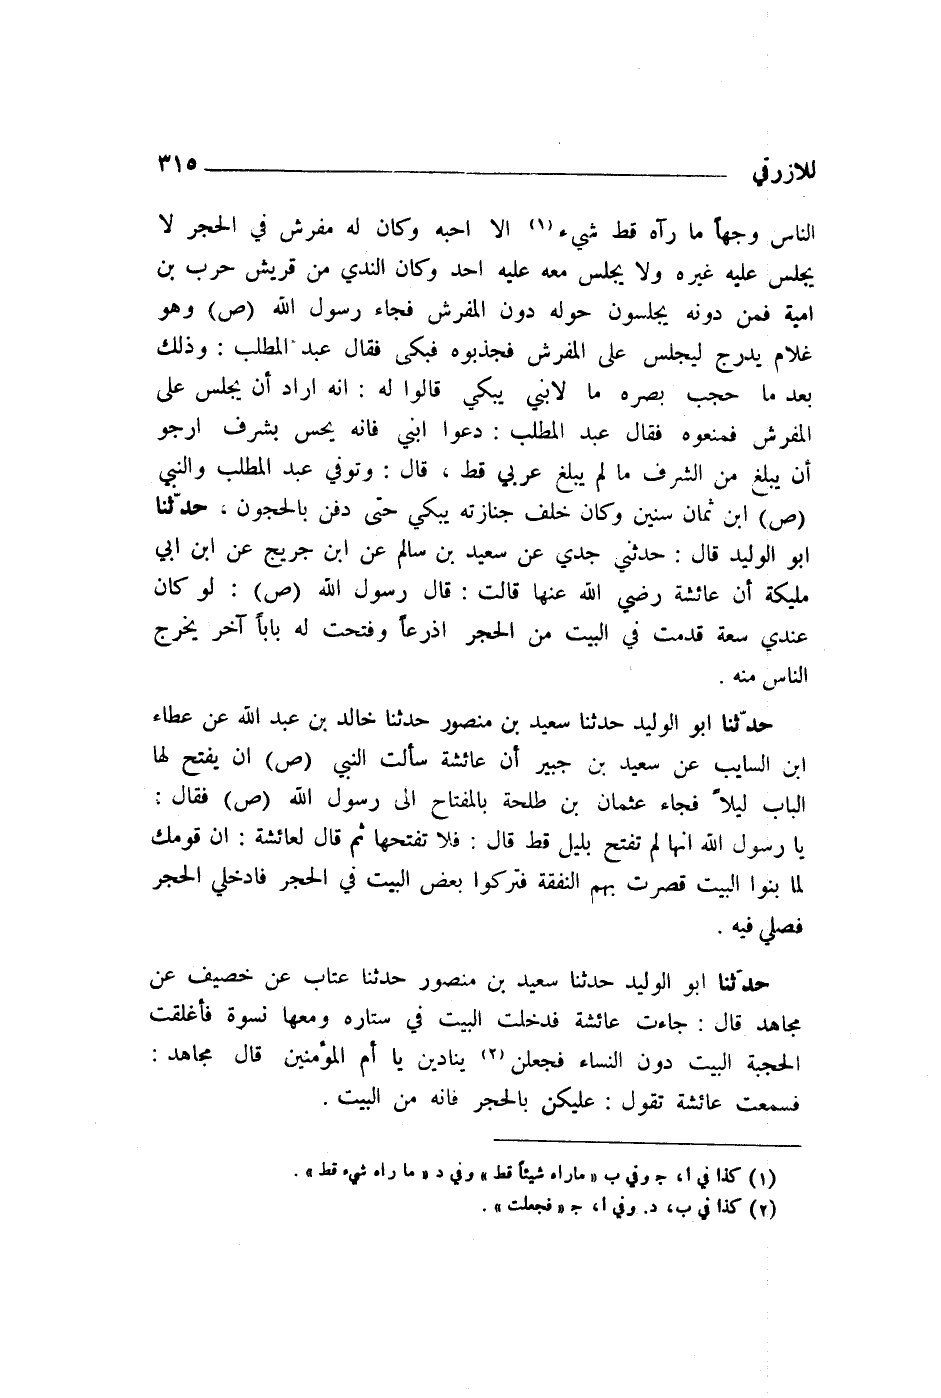 للازرقي ٣١٥
الناس وجهاً ما رآه قط شيء (١) الا احبه وكان له مفرش في الحجر لا
يجلس عليه غيره ولا يجلس معه عليه احد وكان الندي من قريش حرب بن
امية فمن دونه يجلسون حوله دون المفرش فجاء رسول الله (ص) وهو
غلام يدرج ليجلس على المفرش فجذبوه فبكى فقال عبد المطلب : وذلك
بعد ما حجب بصره ما لابني يبكي قالوا له : انه اراد أن يجلس على
المفرش فمنعوه فقال عبد المطلب : دعوا ابني فانه يحس بشرف ارجو
أن يبلغ من الشرف ما لم يبلغ عربي قط ، قال : وتوفي عبد المطلب والنبي
(ص) ابن ثمان سنين وكان خلف جنازته يبكي حتى دفن بالحجون ، حدّثنا
ابو الوليد قال : حدثني جدي عن سعيد بن سالم عن ابن جريج عن ابن ابي
مليكة أن عائشة رضي الله عنها قالت : قال رسول الله (ص) : لو كان
عندي سعة قدمت في البيت من الحجر اذرعاً وفتحت له باباً آخر يخرج
الناس منه .
حدّثنا ابو الوليد حدثنا سعيد بن منصور حدثنا خالد بن عبد الله عن عطاء
ابن السايب عن سعيد بن جبير أن عائشة سألت النبي (ص) ان يفتح لها
الباب ليلاً فجاء عثمان بن طلحة بالمفتاح الى رسول الله (ص) فقال :
يا رسول الله انها لم تفتح بليل قط قال : فلا تفتحها ثم قال لعائشة : ان قومك
لما بنوا البيت قصرت بهم النفقة فتركوا بعض البيت في الحجر فادخلي الحجر
فصلي فيه .
حدّثنا ابو الوليد حدثنا سعيد بن منصور حدثنا عتاب عن خصيف عن
مجاهد قال : جاءت عائشة فدخلت البيت في ستاره ومعها نسوة فأغلقت
الحجبة البيت دون النساء فجعلن (٢) ينادين يا أم المؤمنين قال مجاهد :
فسمعت عائشة تقول : عليكن بالحجر فانه من البيت .
(١) كذا في ا، ج وفي ب « ماراه شيئاً قط » وفي د « ما راه شيء قط » .
(٢) كذا في ب، د. وفي ا، ج « فجعلت » .